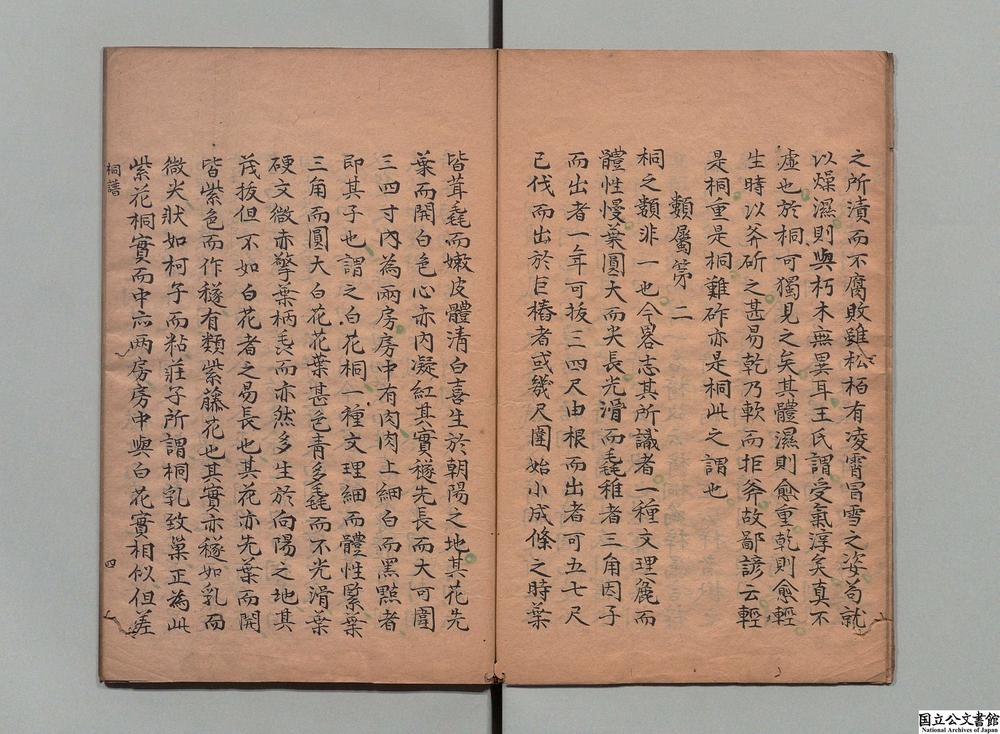 之所漬而不腐敗雖松栢有凌霄冒雪之姿苟就
以燥濕則與朽木無異耳王氏謂受氣淳矣真不
虛也於桐可獨見之矣其體濕則愈重乾則愈輕
生時以斧斫之甚易乾乃軟而拒斧故鄙諺云輕
是桐重是桐難斫亦是桐此之謂也
類屬第二
桐之類非一也今畧志其所識者一種文理麄而
體性慢葉圓大而尖長光滑而毳稚者三角因子
而出者一年可拔三四尺由根而出者可五七尺
已伐而出於巨樁者或幾尺圍始小成條之時葉
皆茸毳而嫩皮體清白喜生於朝陽之地其花先
葉而開白色心赤內凝紅其實穟先長而大可圍
三四寸內為兩房房中有肉肉上細白而黑點者
即其子也謂之白花桐一種文理細而體性緊葉
三角而圓大白花花葉甚色青多毳而不光滑葉
硬文微赤擎葉柄毳而亦然多生於向陽之地其
茂拔但不如白花者之易長也其花亦先葉而開
皆紫色而作穟有類紫藤花也其實亦穟如乳而
微尖狀如柯子而粘莊子所謂桐乳致巢正為此
紫花桐實而中亦兩房房中與白花實相似但差
桐譜
四
国立公文書館
National Archives of Japan